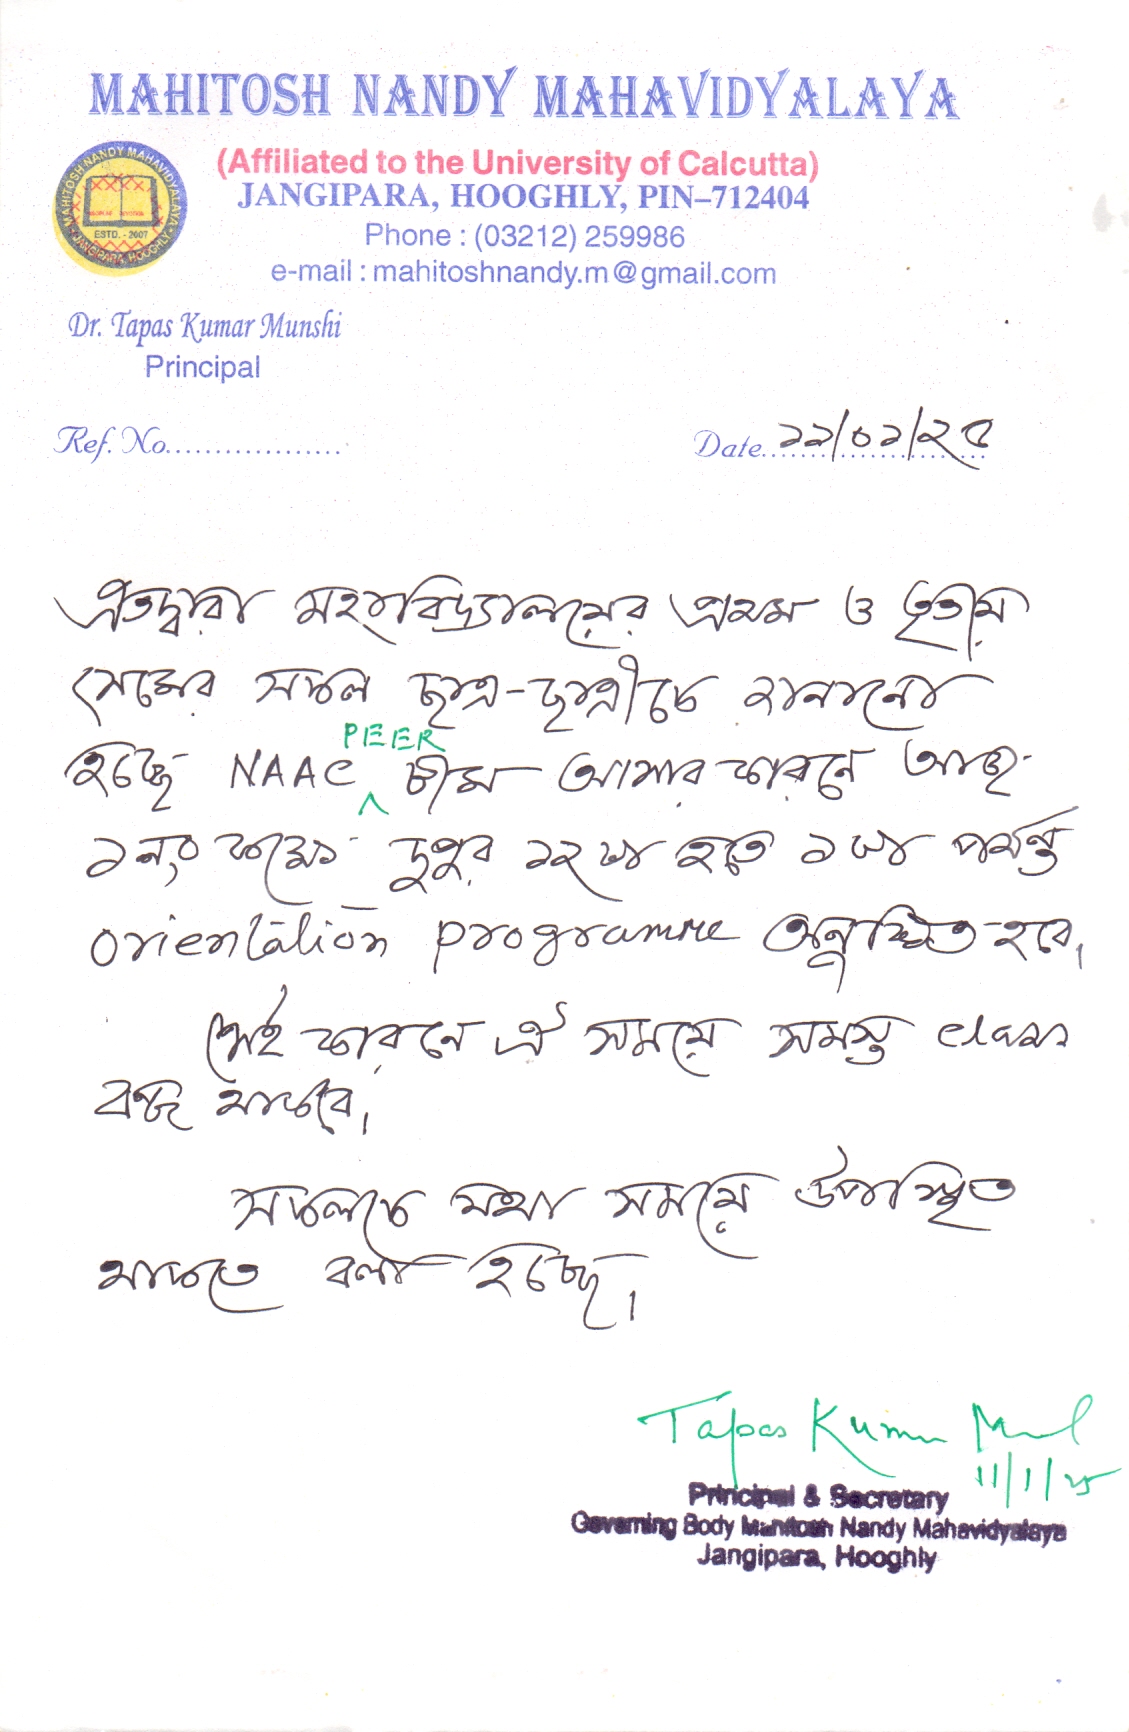 MAHITOSH NANDY MAHAVIDYALAYA
(Affiliated to the University of Calcutta)
JANGIPARA, HOOGHLY, PIN–712404
Phone : (03212) 259986
e-mail : mahitoshnandy.m@gmail.com
MAHITOSH NANDY MAHAVIDYALAYA
ESTD. - 2007
JANGIPARA, HOOGHLY
Dr. Tapas Kumar Munshi
Principal
Ref. No.................. Date..১১/০১/২৫
এতদ্বারা মহাবিদ্যালয়ের প্রথম ও তৃতীয়
সেমের সকল ছাত্র-ছাত্রীকে জানানো
হচ্ছে NAAC PEER টীম আসার কারনে আজ
১নং কক্ষে দুপুর ১২ টা হতে ১ টা পর্যন্ত
orientation programme অনুষ্ঠিত হবে।
সেই কারনে ঐ সময়ে সমস্ত class
বন্ধ থাকবে।
সকলকে যথা সময়ে উপস্থিত
থাকতে বলা হচ্ছে।
Tapas Kumar
11/1/25
Principal & Secretary
Governing Body Mahitosh Nandy Mahavidyalaya
Jangipara, Hooghly